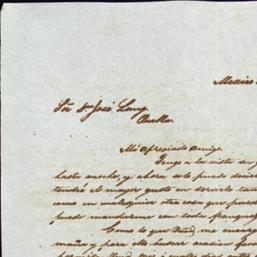 Mexico
Sor Dn José Lang
Puebla
Mi apreciado amigo.
Tengo a la vista su
hasta anoche, y ahora solo puedo decir
tendré el mayor gusto en servirlo tan
como en cualquiera otra cosa que pued
puede mandarme con toda franque
Como lo que Vmd. me encarg
para ello buscar ocasion favor